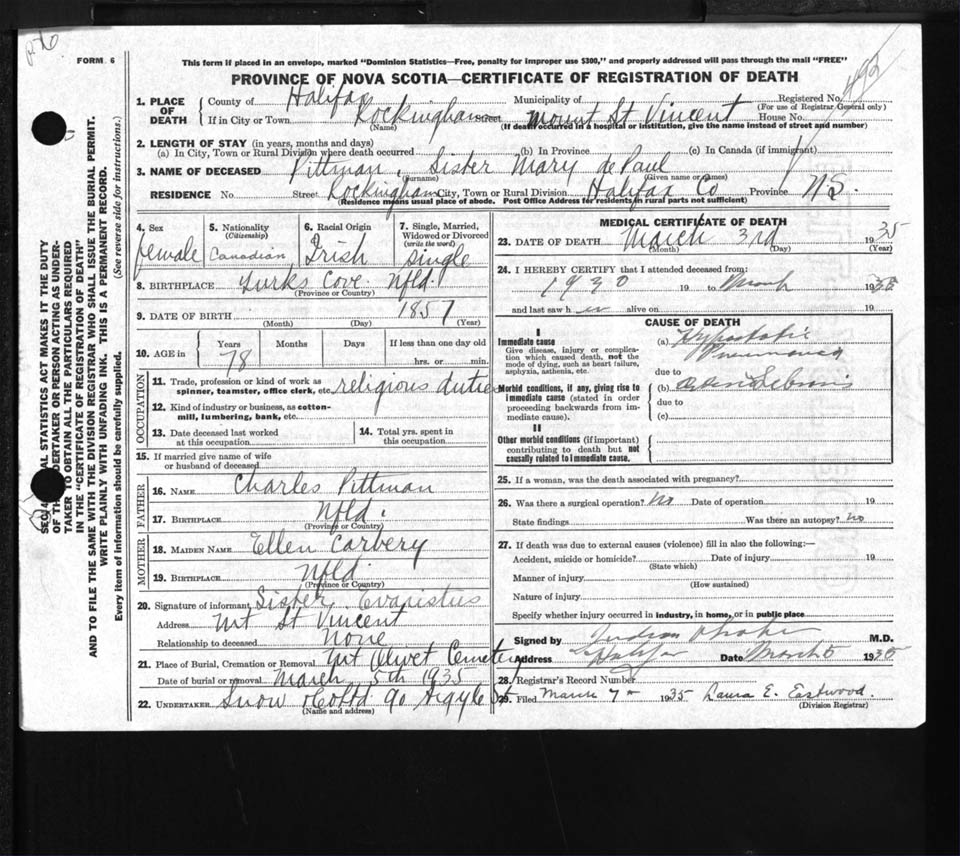 FORM 6
This form if placed in an envelope, marked "Dominion Statistics—Free, penalty for improper use $300," and properly addressed will pass through the mail "FREE"
PROVINCE OF NOVA SCOTIA—CERTIFICATE OF REGISTRATION OF DEATH
492
1. PLACE OF DEATH
County of Halifax Municipality of Registered No.
(For use of Registrar General only)
If in City or Town Rockingham Street Mount St Vincent House No.
(Name) (If death occurred in a hospital or institution, give the name instead of street and number)
2. LENGTH OF STAY (in years, months and days)
(a) In City, Town or Rural Division where death occurred (b) In Province (c) In Canada (if immigrant)
3. NAME OF DECEASED Pittman, Sister Mary de Paul
(Surname) (Given name or names)
RESIDENCE No. Street Rockingham City, Town or Rural Division Halifax Co Province N.S.
(Residence means usual place of abode. Post Office Address for residents in rural parts not sufficient)
4. Sex female
5. Nationality (Citizenship) Canadian
6. Racial Origin Irish
7. Single, Married, Widowed or Divorced (write the word) single
8. BIRTHPLACE Turks Cove Nfld.
(Province or Country)
9. DATE OF BIRTH 1857
(Month) (Day) (Year)
10. AGE in Years Months Days If less than one day old
78 hrs. or min.
OCCUPATION
11. Trade, profession or kind of work as spinner, teamster, office clerk, etc. religious duties
12. Kind of industry or business, as cotton-mill, lumbering, bank, etc.
13. Date deceased last worked at this occupation
14. Total yrs. spent in this occupation
15. If married give name of wife or husband of deceased
FATHER
16. NAME Charles Pittman
17. BIRTHPLACE Nfld.
(Province or Country)
MOTHER
18. MAIDEN NAME Ellen Carbery
19. BIRTHPLACE Nfld
(Province or Country)
20. Signature of informant Sister Evaristus
Address Mt St Vincent
Relationship to deceased None
21. Place of Burial, Cremation or Removal Mt Olivet Cemetery
Date of burial or removal March 5th 1935
22. UNDERTAKER Snow & Co Ltd 90 Argyle St
(Name and address)
MEDICAL CERTIFICATE OF DEATH
23. DATE OF DEATH March 3rd 1935
(Month) (Day) (Year)
24. I HEREBY CERTIFY that I attended deceased from:
1930 19 to March 1935
and last saw h er alive on 19
CAUSE OF DEATH
I
Immediate cause
Give disease, injury or complication which caused death, not the mode of dying, such as heart failure, asphyxia, asthenia, etc.
(a) Hypostatic Pneumonia
due to
Morbid conditions, if any, giving rise to immediate cause (stated in order proceeding backwards from immediate cause).
(b)
due to
(c)
II
Other morbid conditions (if important) contributing to death but not causally related to immediate cause.
25. If a woman, was the death associated with pregnancy?
26. Was there a surgical operation? No Date of operation 19
State findings Was there an autopsy? no
27. If death was due to external causes (violence) fill in also the following:—
Accident, suicide or homicide? Date of injury 19
(State which)
Manner of injury
(How sustained)
Nature of injury
Specify whether injury occurred in industry, in home, or in public place
Signed by M.D.
Address Halifax Date March 5 1935
28. Registrar's Record Number
29. Filed March 7 1935 Laura E. Eastwood.
(Division Registrar)
AL STATISTICS ACT MAKES IT THE DUTY
OF THE UNDERTAKER OR PERSON ACTING AS UNDER-
TAKER TO OBTAIN ALL THE PARTICULARS REQUIRED
IN THE "CERTIFICATE OF REGISTRATION OF DEATH"
AND TO FILE THE SAME WITH THE DIVISION REGISTRAR WHO SHALL ISSUE THE BURIAL PERMIT.
WRITE PLAINLY WITH UNFADING INK. THIS IS A PERMANENT RECORD.
Every item of information should be carefully supplied. (See reverse side for instructions.)